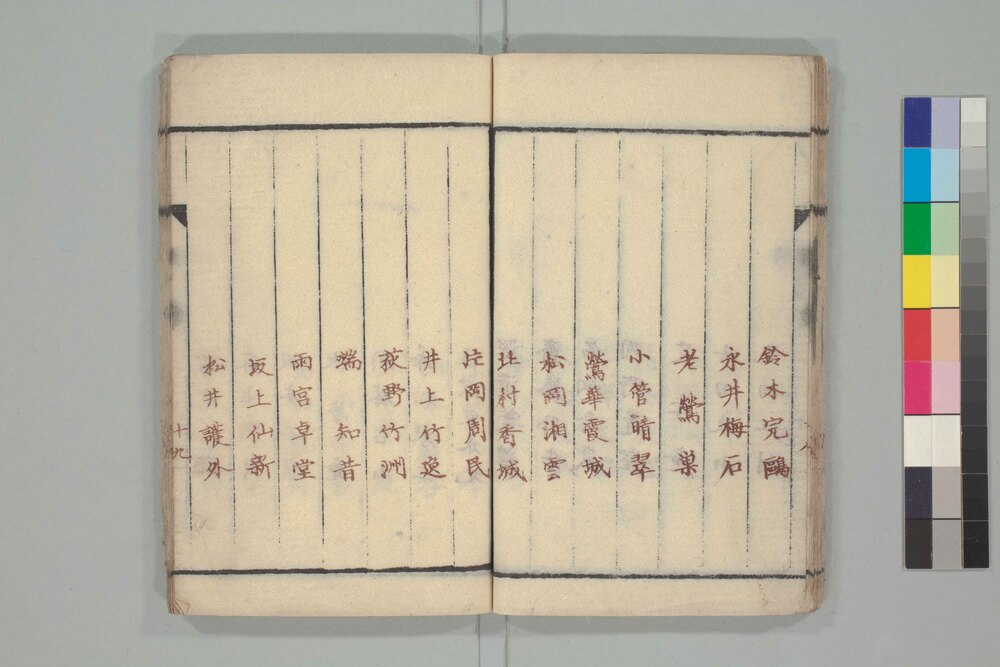 鈴木完鷗
永井梅石
老鶯巣
小管晴翠
鶯華霞城
松岡湘雲
北村香城
片岡周民
井上竹逸
荻野竹洲
端知昔
雨宮卓堂
坂上仙新
松井護外
十九